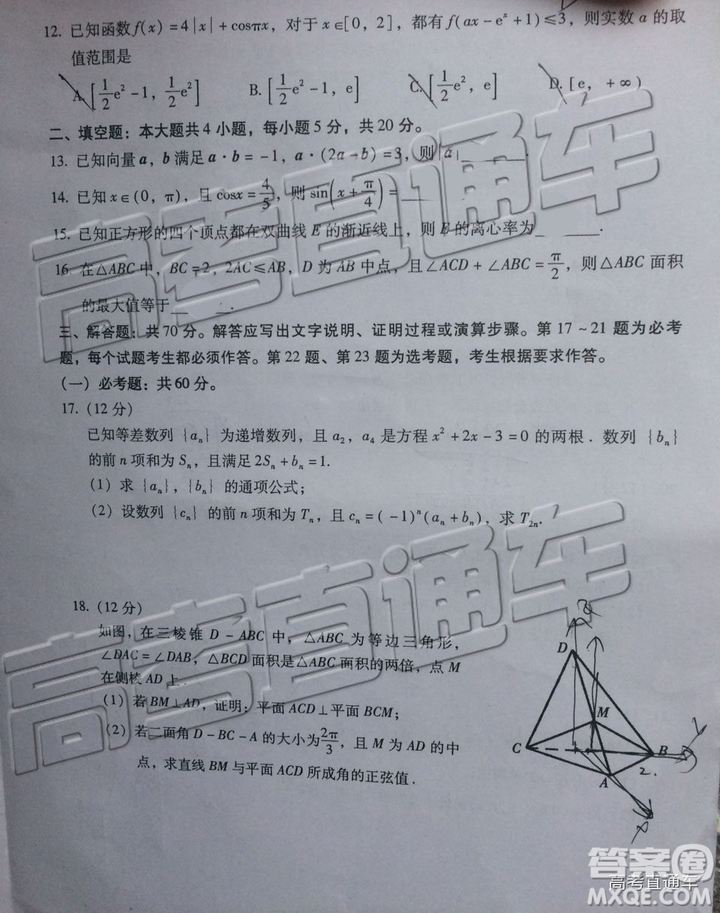 12. 已知函数f(x)=4|x|+cosπx，对于x∈[0，2]，都有f(ax-eˣ+1)≤3，则实数a的取
值范围是
A. [1/2e²-1，1/2e²] B. [1/2e²-1，e] C. [1/2e²，e] D. [e，+∞)
二、填空题：本大题共4小题，每小题5分，共20分。
13. 已知向量a，b满足a·b=-1，a·(2a-b)=3，则|a|
14. 已知x∈(0，π)，且cosx=4/5，则sin(x+π/4)=
15. 已知正方形的四个顶点都在双曲线E的渐近线上，则E的离心率为
16. 在△ABC中，BC=2，2AC≤AB，D为AB中点，且∠ACD+∠ABC=π/2，则△ABC面积
的最大值等于
三、解答题：共70分。解答应写出文字说明、证明过程或演算步骤。第17～21题为必考
题，每个试题考生都必须作答。第22题、第23题为选考题，考生根据要求作答。
（一）必考题：共60分。
17.（12分）
已知等差数列{aₙ}为递增数列，且a₂，a₄是方程x²+2x-3=0的两根．数列{bₙ}
的前n项和为Sₙ，且满足2Sₙ+bₙ=1.
（1）求{aₙ}，{bₙ}的通项公式；
（2）设数列{cₙ}的前n项和为Tₙ，且cₙ=(-1)ⁿ(aₙ+bₙ)，求T₂ₙ.
18.（12分）
如图，在三棱锥D-ABC中，△ABC为等边三角形，
∠DAC=∠DAB，△BCD面积是△ABC面积的两倍，点M
在侧棱AD上．
（1）若BM⊥AD，证明：平面ACD⊥平面BCM；
（2）若二面角D-BC-A的大小为2π/3，且M为AD的中
点，求直线BM与平面ACD所成角的正弦值．
D
M
C
B
A
2.
高考直通车
高考直通车
答案圈
高考直通车
MXQE.COM